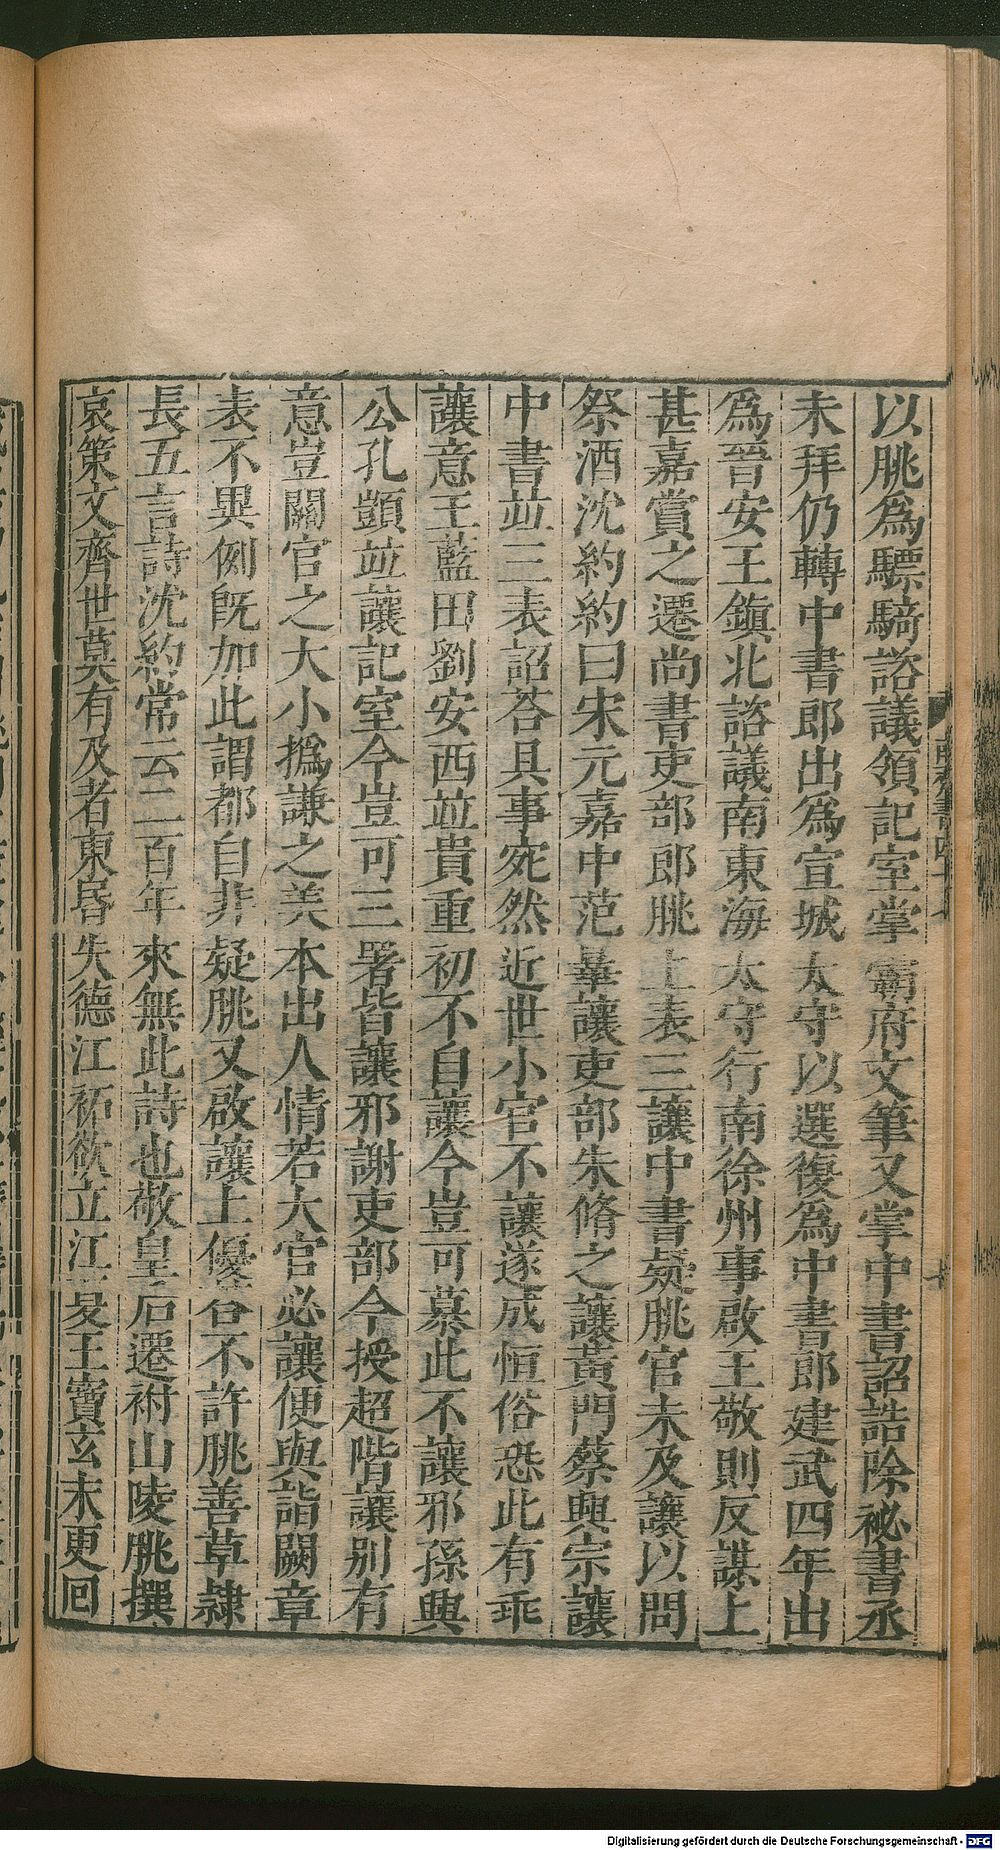 以朓爲驃騎諮議領記室掌霸府文筆又掌中書詔誥除祕書丞
未拜仍轉中書郎出爲宣城太守以選復爲中書郎建武四年出
爲晉安王鎭北諮議南東海太守行南徐州事啟王敬則反謀上
甚嘉賞之遷尚書吏部郎朓上表三讓中書疑朓官未及讓以問
祭酒沈約約曰宋元嘉中范曅讓吏部朱脩之讓黃門蔡興宗讓
中書竝三表詔荅具事宛然近世小官不讓遂成恒俗恐此有乖
讓意王藍田劉安西竝貴重初不自讓今豈可慕此不讓邪孫興
公孔顗竝讓記室今豈可三署皆讓邪謝吏部今授超階讓別有
意豈關官之大小撝謙之美本出人情若大官必讓便與詣闕章
表不異例旣加此謂都自非疑朓又啟讓上優荅不許朓善草隸
長五言詩沈約常云二百年來無此詩也敬皇后遷祔山陵朓撰
哀策文齊世莫有及者東昏失德江祏欲立江夏王寶玄末更回
南齊書四十七
Digitalisierung gefördert durch die Deutsche Forschungsgemeinschaft - DFG